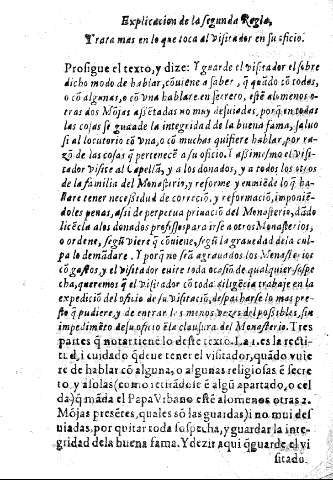 Explicacion de la segunda Regla,
Trata mas en lo que toca al Visitador en su oficio.
Prosigue el texto, y dize: Y guarde el visitador el sobre
dicho modo de hablar, cõuiene a saber, q̃ quãdo cõ todas,
o cõ algunas, o cõ vna hablare en secreto, estẽ alomenos o
tras dos Mõjas assẽtadas no muy desuiadas, porq̃ en todas
las cosas se guaade la integridad de la buena fama, saluo
si al locutorio cõ vna, o cõ muchas quisiere hablar, por ra-
zõ de las cosas q̃ pertenecẽ a su oficio. I assimismo el visi-
tador visite al Capellã, y a los donados, y a todos los otros
de la familia del Monasterio, y reforme y enmiẽde lo q̃ ha-
llare tener necessidad de correciõ, y reformaciõ, imponiẽ-
doles penas, assi de perpetua priuaciõ del Monasterio, dãdo
licẽcia a los donados professos para irse a otros Monasterios,
o ordene, segũ viere q̃ cõuiene, segũ la grauedad de la cul-
pa lo demãdare. Y porq̃ no seã agrauados los Monasterios
cõ gastos, y el visitador euite toda ocasiõ de qualquier sospe-
cha, queremos q̃ el visitador cõ toda diligẽcia trabaje en la
expediciõ del oficio de su visitaciõ, despacharse lo mas pres-
to q̃ pudiere, y de entrar las menos vezes del possibles, sin
impedimẽto de su oficio ẽ la clausura del Monasterio. Tres
partes q̃ notar tiene lo deste texto. La 1. es la recti-
tud, i cuidado q̃ deue tener el visitador, quãdo vuie
re de hablar cõ alguna, o algunas religiosas ẽ secre
to, y a solas (como retirãdose ẽ algũ apartado, o cel
da) q̃ mãda el Papa Vrbano estẽ alomenos otras 2.
Mõjas presẽtes, quales sõ las guardas) i no mui des
uiadas, por quitar toda sospecha, y guardar la inte-
gridad de la buena fama. Y dezir aqui q̃ guarde el vi
sitado.